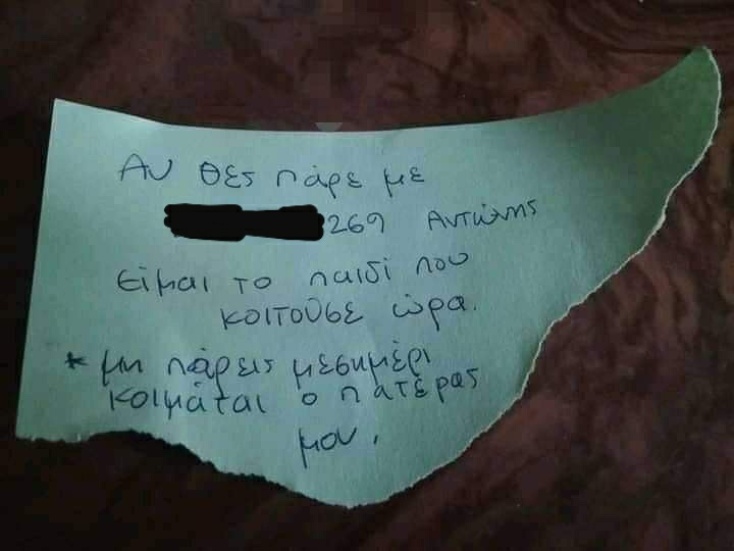 Αν θες πάρε με
269 Αντώνης
Είμαι το παιδί που
κοιτούσε ώρα.
* μη πάρεις μεσημέρι
κοιμάται ο πατέρας
μου.